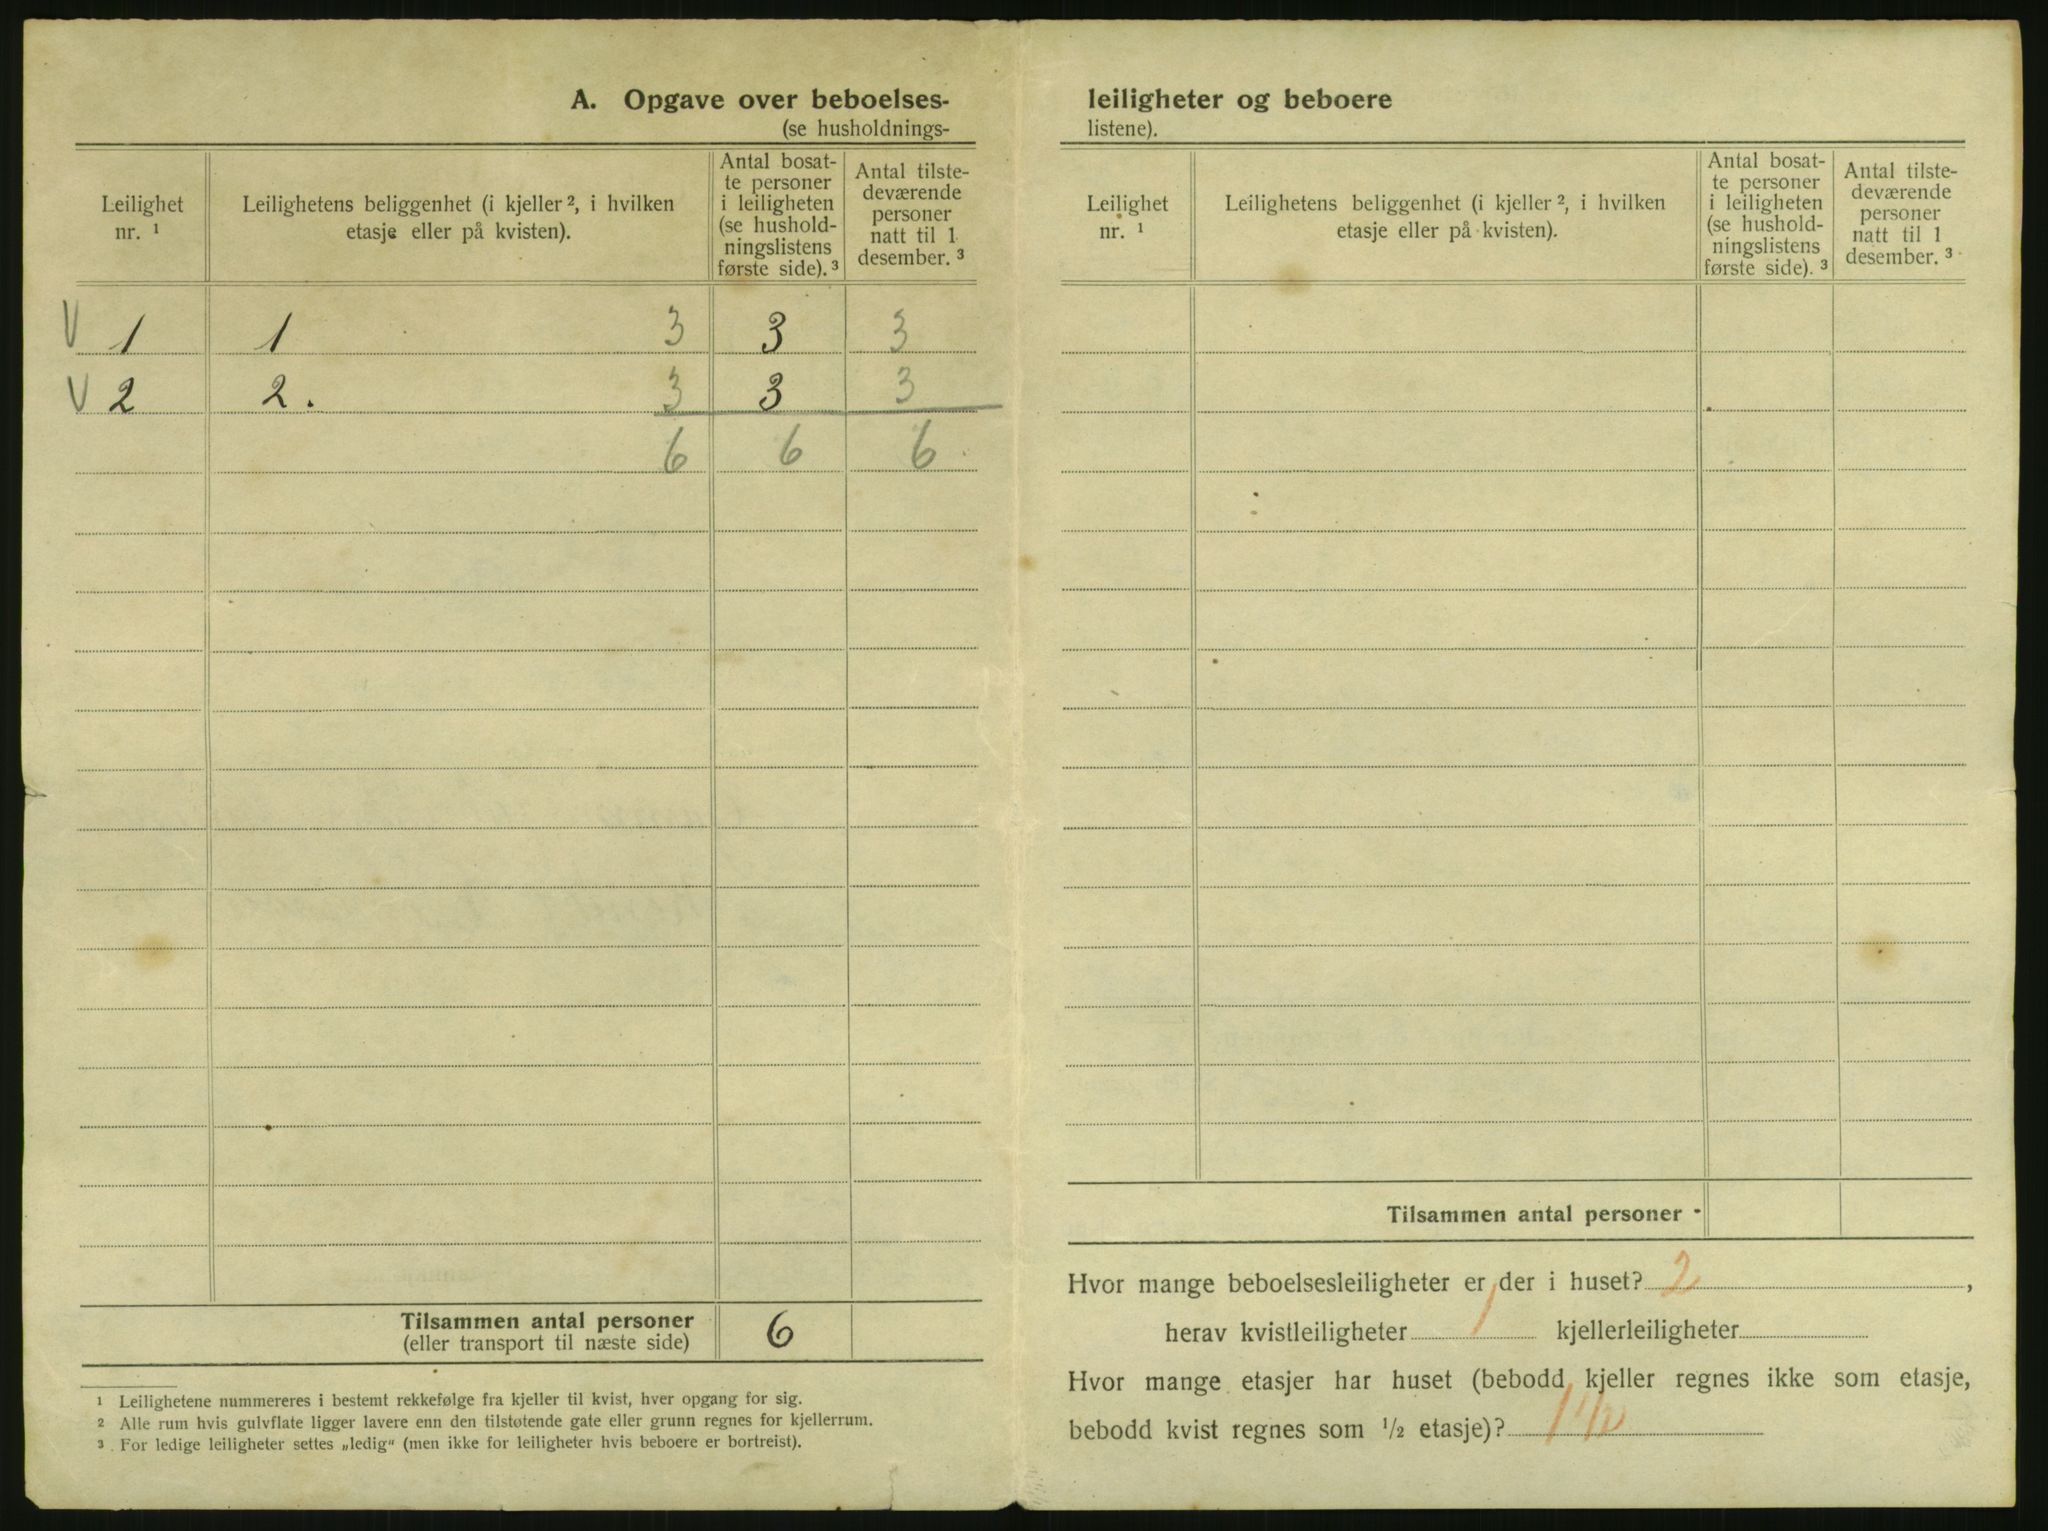 A. Opgave over beboelses-
(se husholdnings-
Leilighet
nr. ¹
Leilighetens beliggenhet (i kjeller ², i hvilken
etasje eller på kvisten).
Antal bosat-
te personer
i leiligheten
(se hushold-
ningslistens
første side). ³
Antal tilste-
deværende
personer
natt til 1
desember. ³
V 1 1 3 3 3
V 2 2. 3 3 3
6 6 6
Tilsammen antal personer 6
(eller transport til næste side)
¹ Leilighetene nummereres i bestemt rekkefølge fra kjeller til kvist, hver opgang for sig.
² Alle rum hvis gulvflate ligger lavere enn den tilstøtende gate eller grunn regnes for kjellerrum.
³ For ledige leiligheter settes „ledig“ (men ikke for leiligheter hvis beboere er bortreist).
leiligheter og beboere
listene).
Leilighet
nr. ¹
Leilighetens beliggenhet (i kjeller ², i hvilken
etasje eller på kvisten).
Antal bosat-
te personer
i leiligheten
(se hushold-
ningslistens
første side). ³
Antal tilste-
deværende
personer
natt til 1
desember. ³
Tilsammen antal personer -
Hvor mange beboelsesleiligheter er der i huset? 2,
herav kvistleiligheter 1 kjellerleiligheter
Hvor mange etasjer har huset (bebodd kjeller regnes ikke som etasje,
bebodd kvist regnes som ½ etasje)? 1 1/2